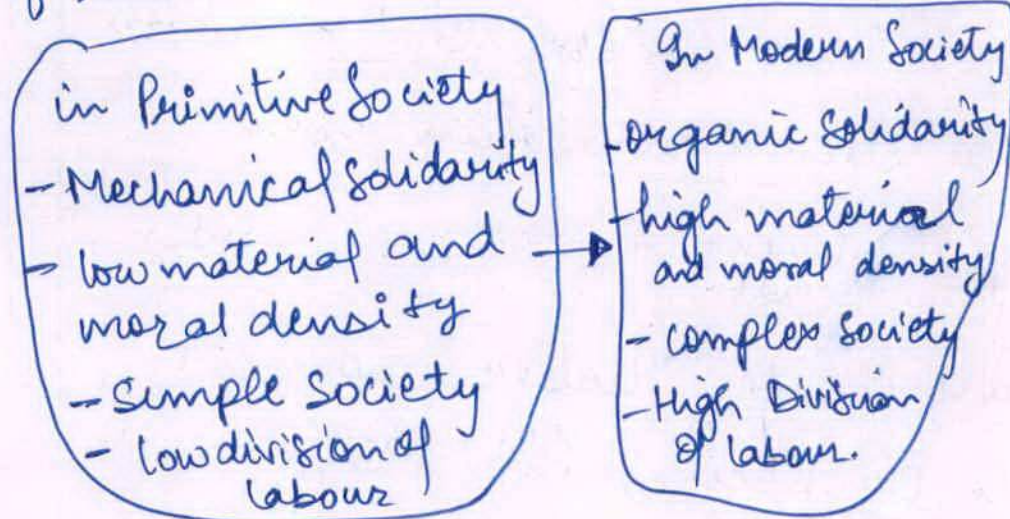 in Primitive Society
- Mechanical Solidarity
- low material and
moral density
- Simple Society
- low division of
labour
In Modern Society
- organic Solidarity
- high material
and moral density
- complex Society
- High Division
of labour.